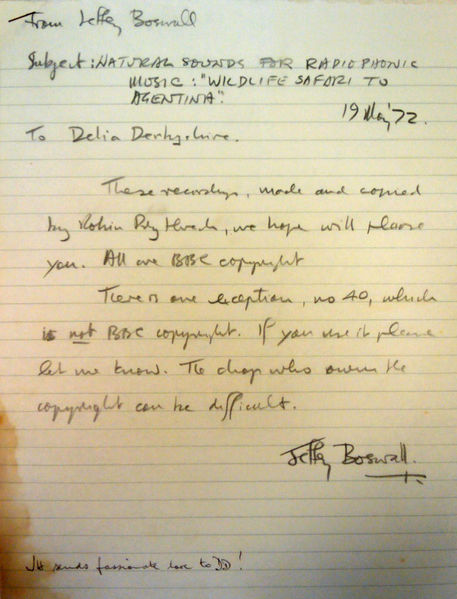 From Jeffery Boswall
Subject: NATURAL SOUNDS FOR RADIOPHONIC
MUSIC: "WILDLIFE SAFARI TO
AGENTINA".
19 May '72.
To Delia Derbyshire.
These recordings, made and copied
by Robin Prytherch, we hope will please
you. All are BBC copyright
There is one exception, no 40, which
is not BBC copyright. If you use it please
let me know. The chap who owns the
copyright can be difficult.
Jeffery Boswall.
sends passionate love to DD!